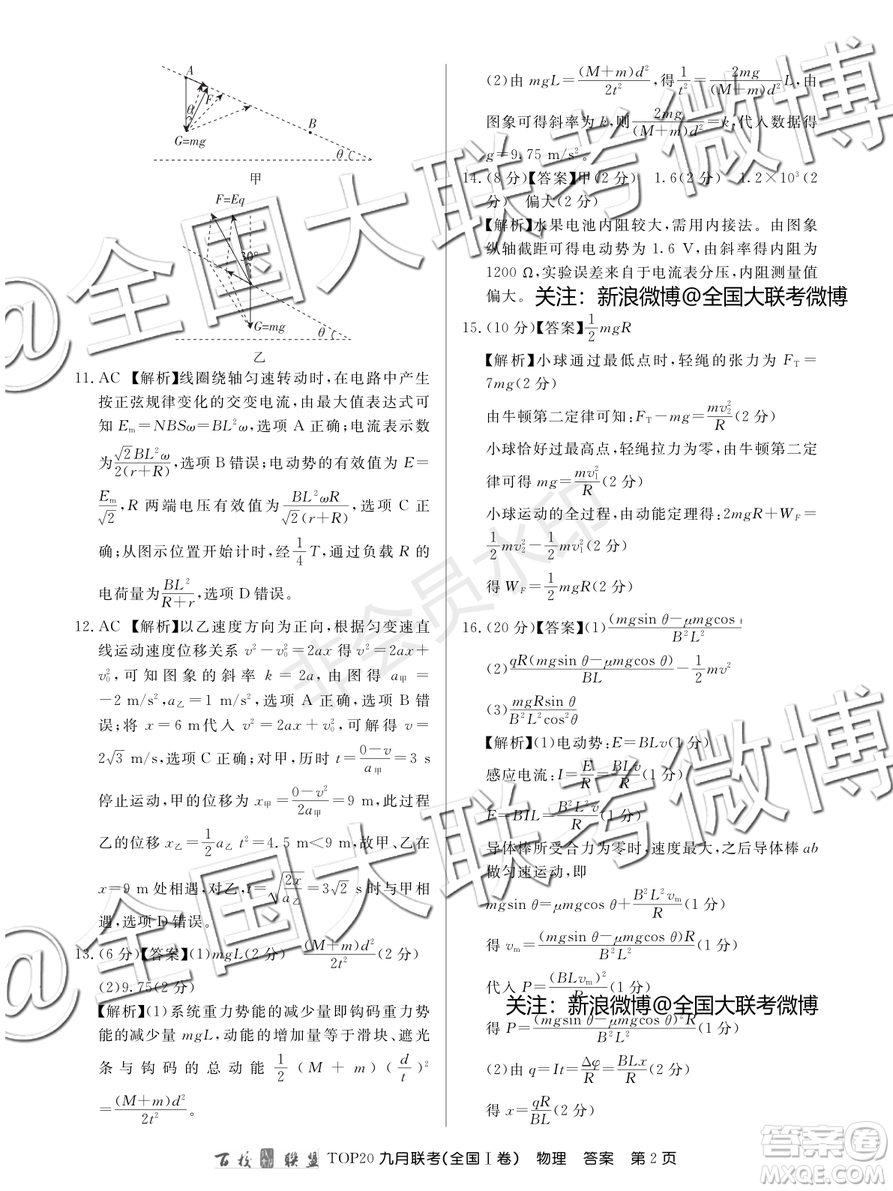 A
F
α
B
G=mg
θ
甲
F=Eq
30°
G=mg
θ
乙
11. AC 【解析】线圈绕轴匀速转动时,在电路中产生
按正弦规律变化的交变电流,由最大值表达式可
知 Eₘ=NBSω=BL²ω,选项 A 正确;电流表示数
为 √2BL²ω/2(r+R),选项 B 错误;电动势的有效值为 E=
Eₘ/√2,R 两端电压有效值为 BL²ωR/√2(r+R),选项 C 正
确;从图示位置开始计时,经 1/4 T,通过负载 R 的
电荷量为 BL²/R+r,选项 D 错误。
12. AC 【解析】以乙速度方向为正向,根据匀变速直
线运动速度位移关系 v²-v₀²=2ax 得 v²=2ax+
v₀²,可知图象的斜率 k=2a,由图得 a甲=
-2 m/s²,a乙=1 m/s²,选项 A 正确、选项 B 错
误;将 x=6 m 代入 v²=2ax+v₀²,可解得 v=
2√3 m/s,选项 C 正确;对甲,历时 t=0-v/a甲=3 s
停止运动,甲的位移为 x甲=0-v²/2a甲=9 m,此过程
乙的位移 x乙=1/2 a乙 t²=4.5 m<9 m,故甲、乙在
x=9 m 处相遇,对乙,t=√(2x/a乙)=3√2 s 时与甲相
遇,选项 D 错误。
13. (6 分)【答案】(1)mgL(2 分) (M+m)d²/2t²(2 分)
(2)9.75(2 分)
【解析】(1)系统重力势能的减少量即钩码重力势
能的减少量 mgL,动能的增加量等于滑块、遮光
条与钩码的总动能 1/2 (M+m)(d/t)²
=(M+m)d²/2t²。
(2)由 mgL=(M+m)d²/2t²,得 1/t²=2mg/(M+m)d² L,由
图象可得斜率为 k,则 2mg/(M+m)d²=k,代入数据得
g=9.75 m/s²。
14. (8 分)【答案】甲(2 分) 1.6(2 分) 1.2×10³(2
分) 偏大(2 分)
【解析】水果电池内阻较大,需用内接法。由图象
纵轴截距可得电动势为 1.6 V,由斜率得内阻为
1200 Ω,实验误差来自于电流表分压,内阻测量值
偏大。
关注：新浪微博@全国大联考微博
15. (10 分)【答案】1/2 mgR
【解析】小球通过最低点时,轻绳的张力为 F_T=
7mg(2 分)
由牛顿第二定律可知:F_T-mg=mv₂²/R(2 分)
小球恰好过最高点,轻绳拉力为零,由牛顿第二定
律可得 mg=mv₁²/R(2 分)
小球运动的全过程,由动能定理得:2mgR+W_F=
1/2 mv₂²-1/2 mv₁²(2 分)
得 W_F=1/2 mgR(2 分)
16. (20 分)【答案】(1)(mgsin θ-μmgcos /B²L²
(2)qR(mgsin θ-μmgcos θ)/BL-1/2 mv²
(3)mgRsin θ/B²L²cos²θ
【解析】(1)电动势:E=BLv(1 分)
感应电流:I=E/R=BLv/R(1 分)
E=BIL=B²L²v/R(1 分)
导体棒所受合力为零时,速度最大,之后导体棒 ab
做匀速运动,即
mgsin θ=μmgcos θ+B²L²vₘ/R(1 分)
得 vₘ=(mgsin θ-μmgcos θ)R/B²L²(1 分)
代入 P=(BLvₘ)²/R(1 分)
关注：新浪微博@全国大联考微博
得 P=(mgsin θ-μmgcos θ)²R/B²L²(1 分)
(2)由 q=It=Δφ/R=BLx/R(1 分)
得 x=qR/BL(1 分)
百校 联盟 TOP20 九月联考(全国Ⅰ卷) 物理 答案 第 2 页
@全国大联考微博
@全国大联考微博
非会员水印
答案圈
MXQE.COM